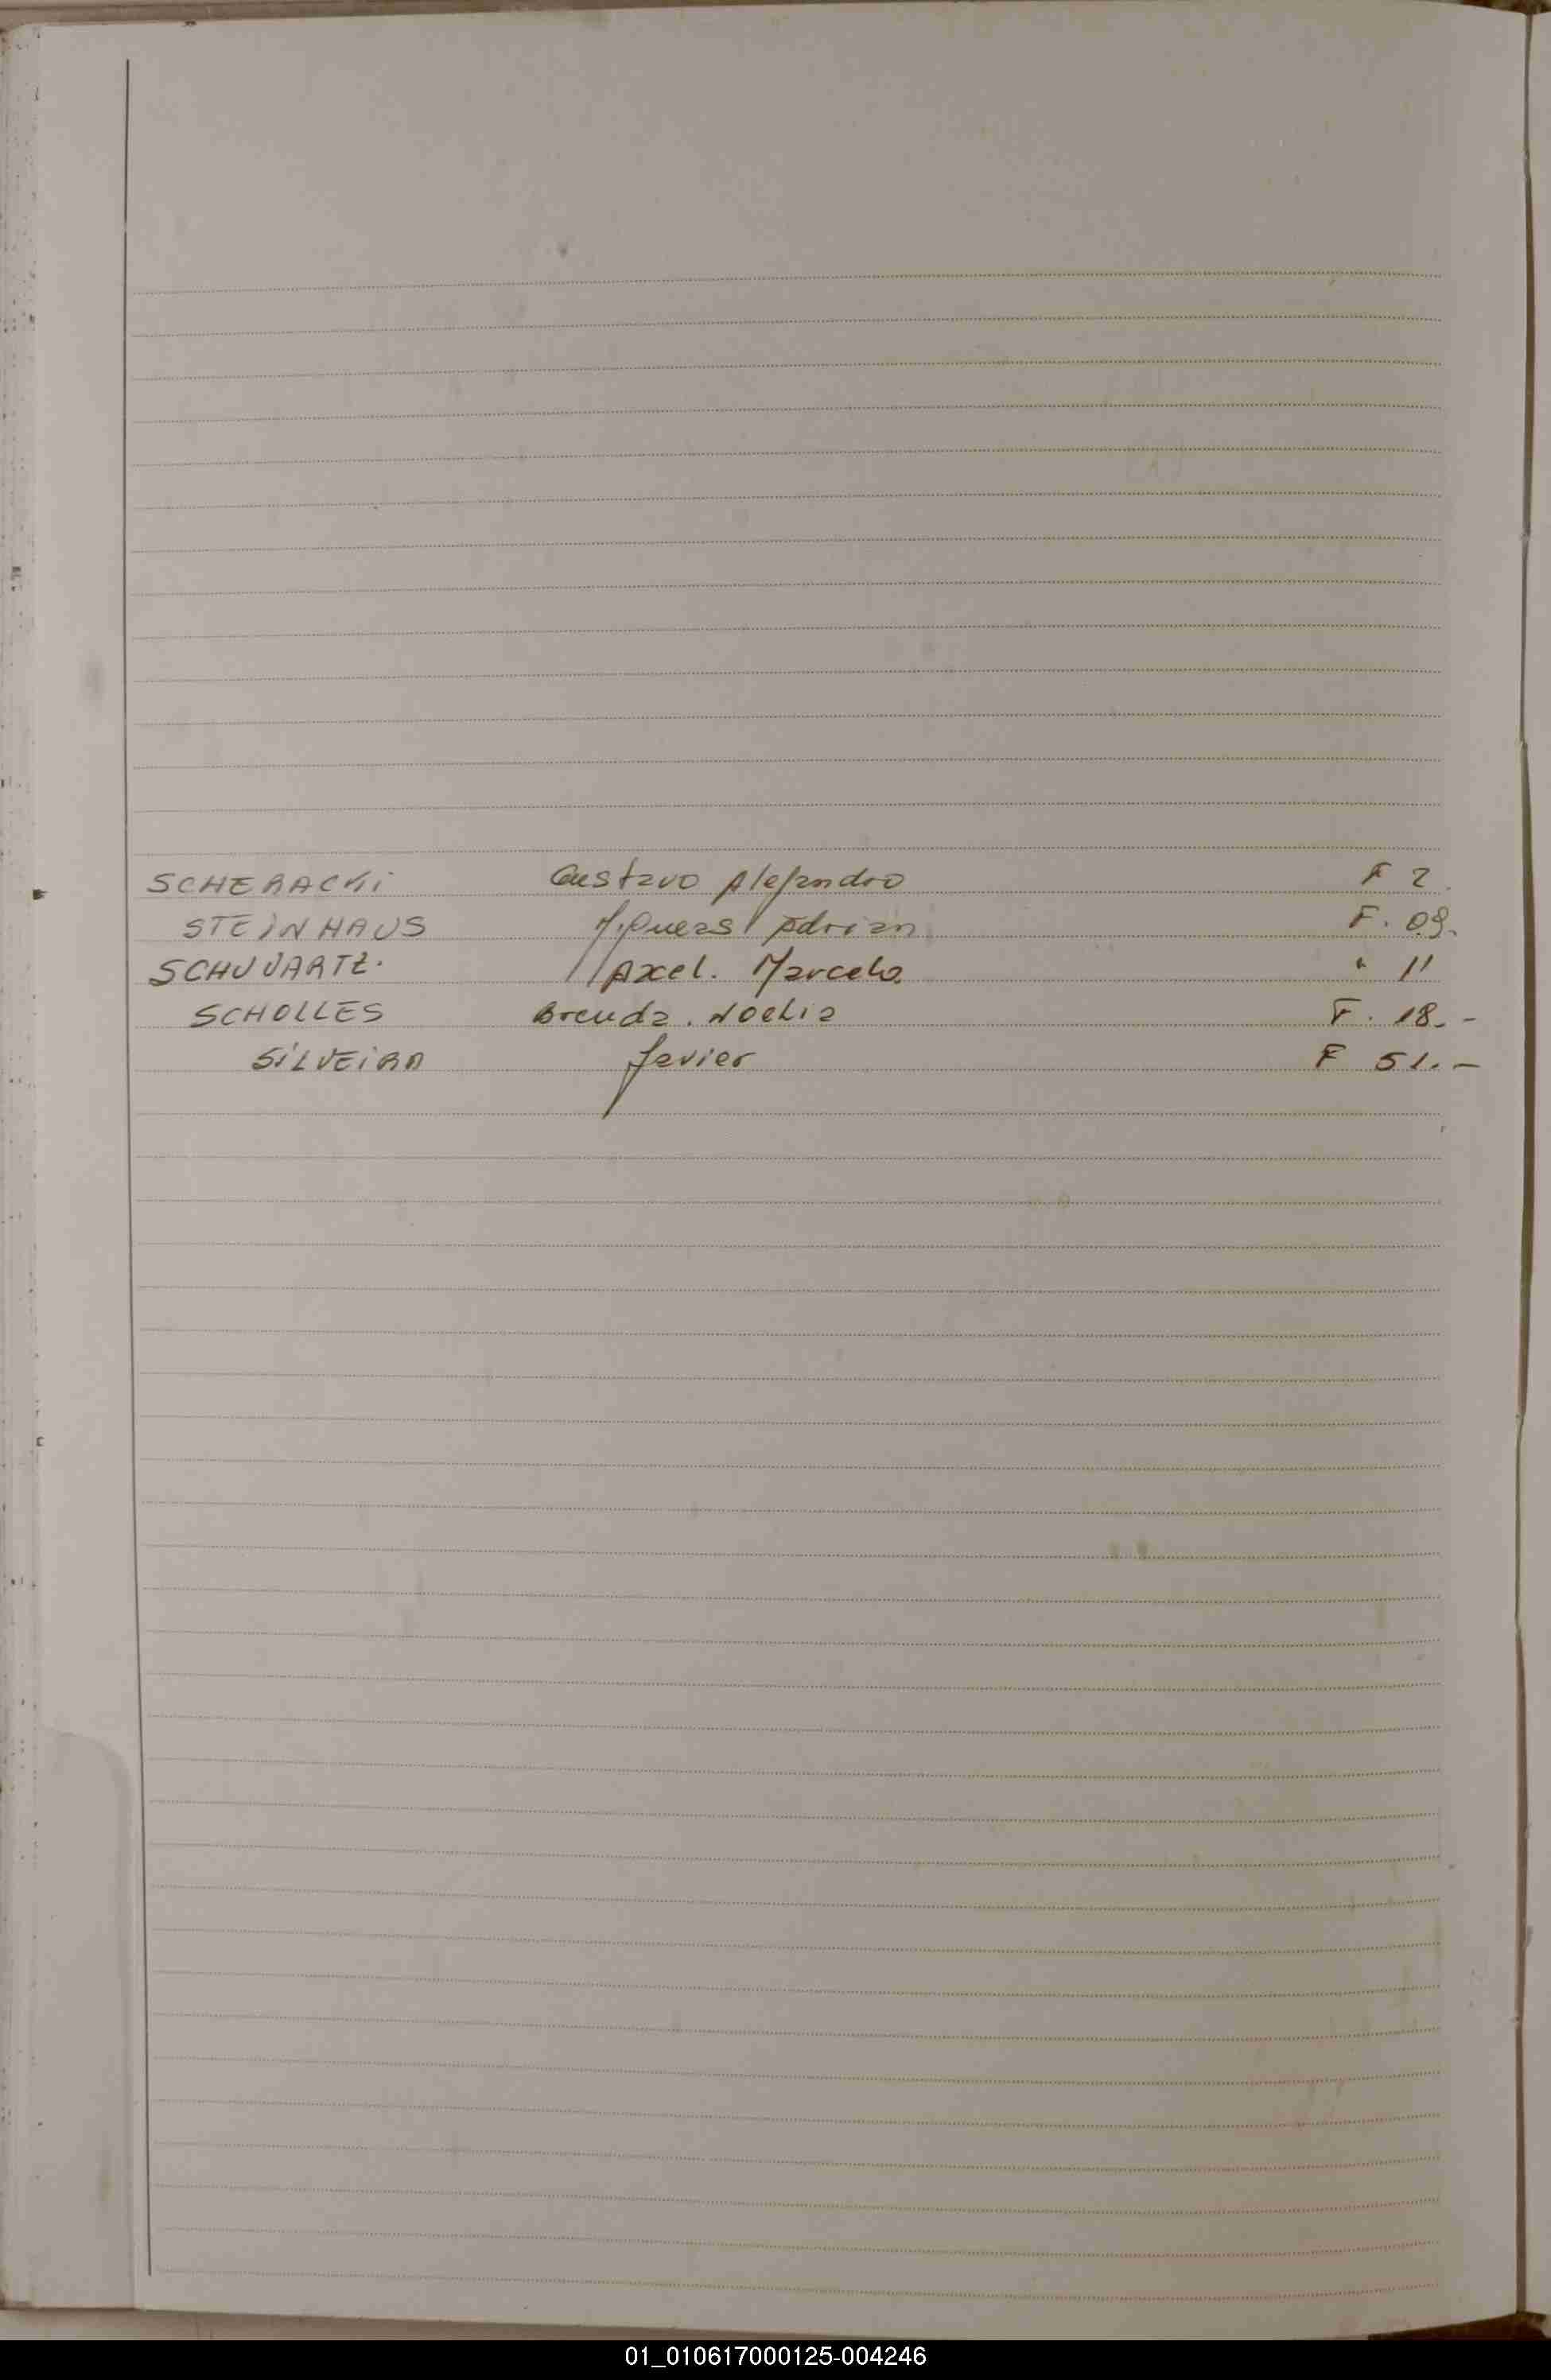 SCHERACKi Gustavo Alejandro F 2.
STEiNHAUS Adrian F. 09.
SCHUVARTZ. Axel. Marcelo. " 11
SCHOLLES Brenda. Noelia F. 18. -
SiLVEiRA Javier F 51. -
01_010617000125-004246